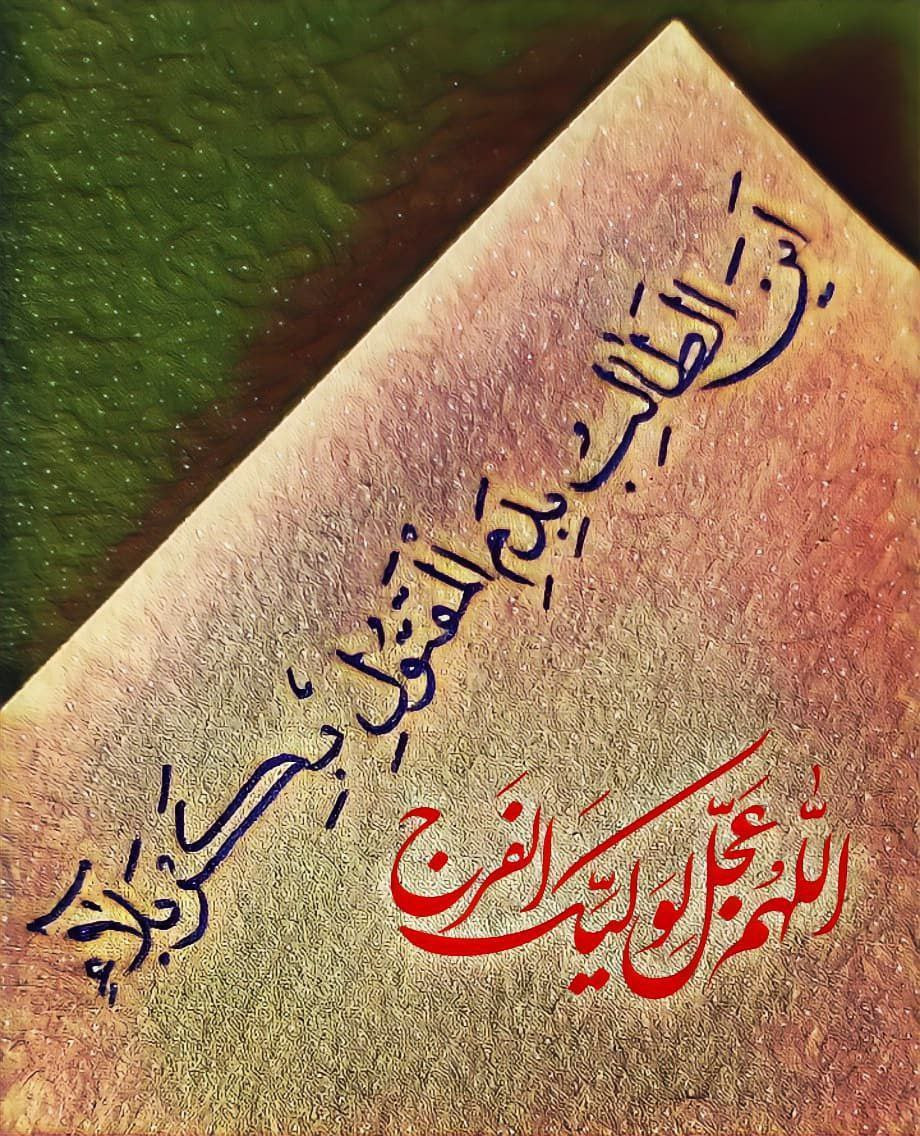 اَینَ الَطّالِبُ بِدَمِ الْمَقتُولِ بِکَربَلاءِ
اللّٰهُمَّ عَجِّل لِوَلیِّکَ الفَرَج